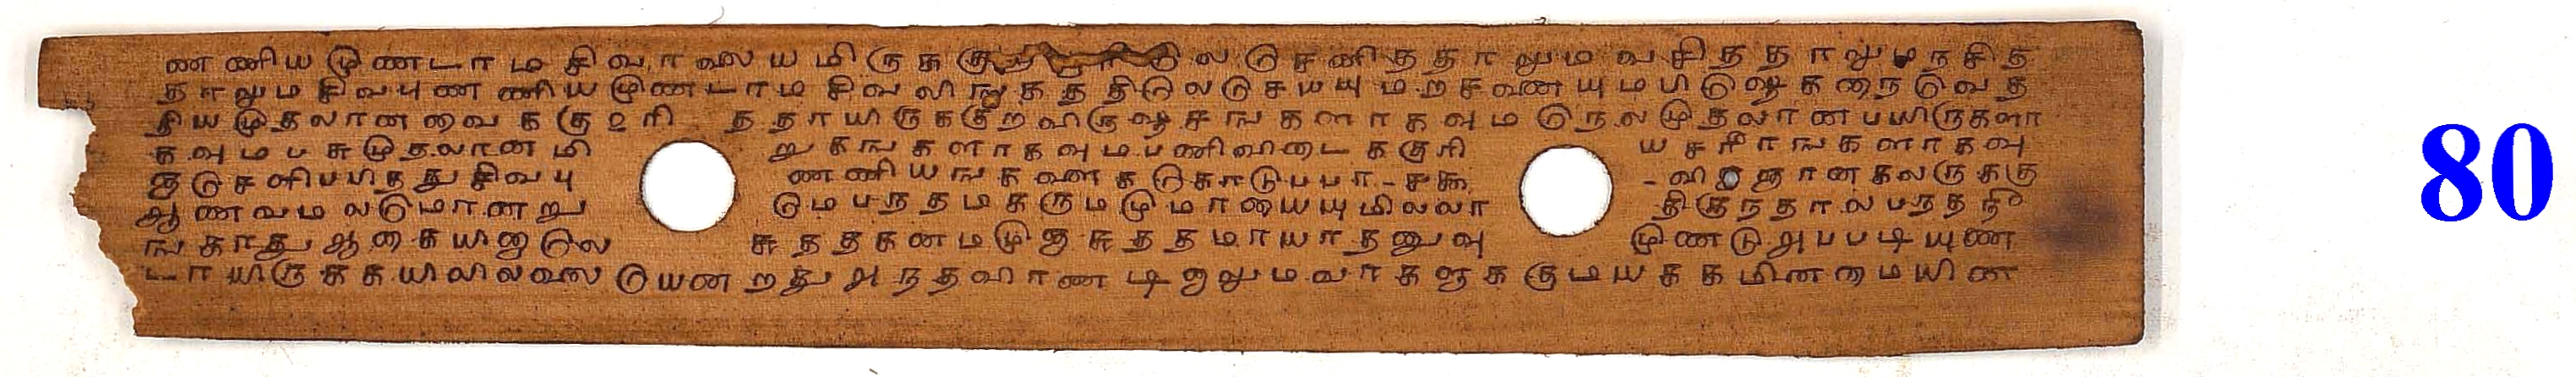 ணணியமுணடாமசிவாலையமிருககு லெசனிததாலுமவசிததாலுமநசித
தாலுமசிவபுணணியமுணடாமசிவலிஙகததிலெசெயயுமறசவணையுமபி
தியமுதலானவைககுஉரி ததாயிருககுறவிருஷசஙகளாகவுமநெலமுதலானபயிருகளா
கவுமபசுமுதலானமி றுகஙகளாகவுமபணிவிடைககுரி யசரீராஙகளாகவு
செனிபபிததுசிவபு ணணியஙகளைககொடுபபா விஞஞானகலருககு
ஆணவமலமொனறு மெபநதமகருமமுமாயையுமிலலா திருநதாலபநதநீ
ஙகாதுஆகையினலெ சுததகனமமுஅசுததமாயாதனுவு முணடுஅபபடியுண
டாயிருககயிலிலலையெனறது அநதவாணடி லுமவாக குமயககமினமையின
80